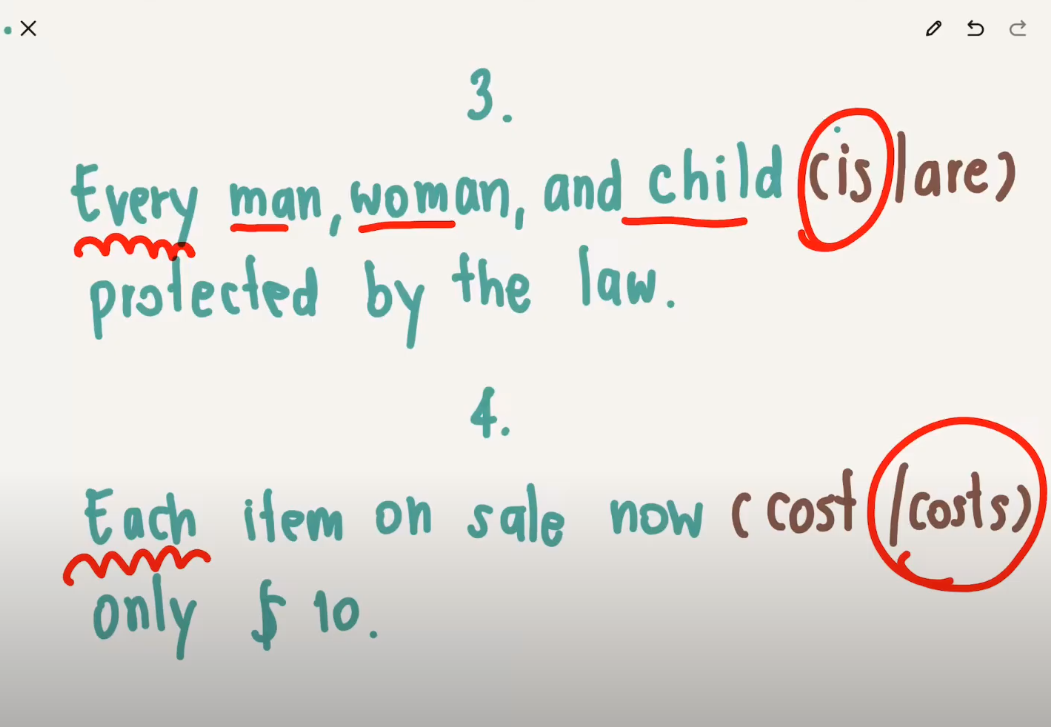 3.
Every man, woman, and child (is/are)
protected by the law.
4.
Each item on sale now (cost/costs)
only $10.